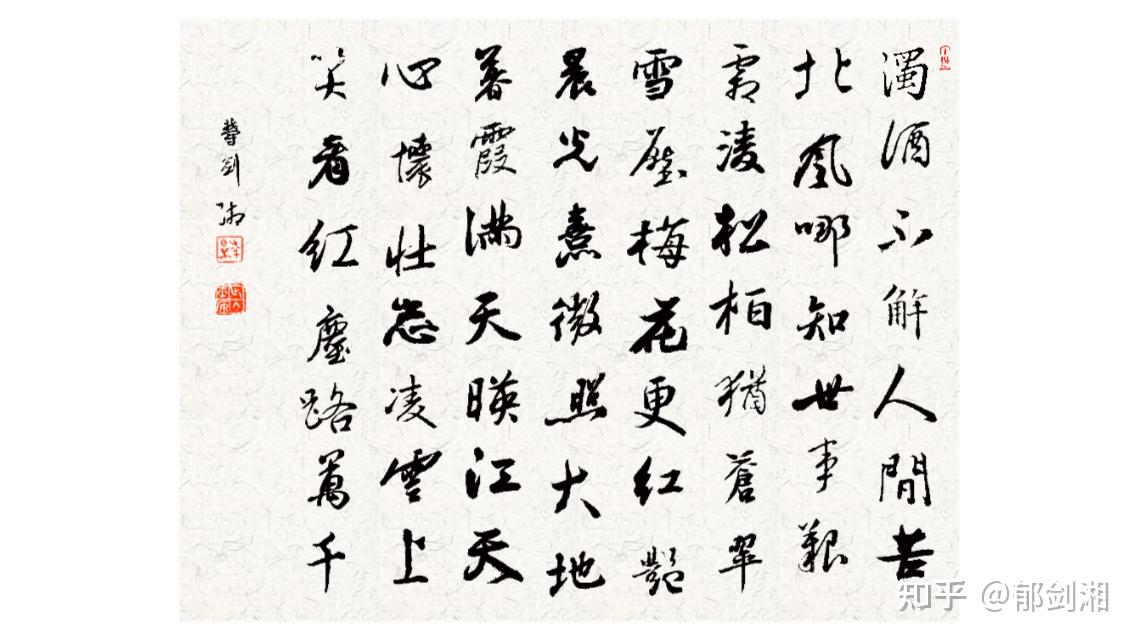 濁酒不解人間苦
北風哪知世事艱
霜淩松柏猶蒼翠
雪壓梅花更紅艷
晨光熹微照大地
暮霞滿天暎江天
心懷壯志凌雲上
笑看紅塵路萬千
剑湘
知乎 @郁剑湘